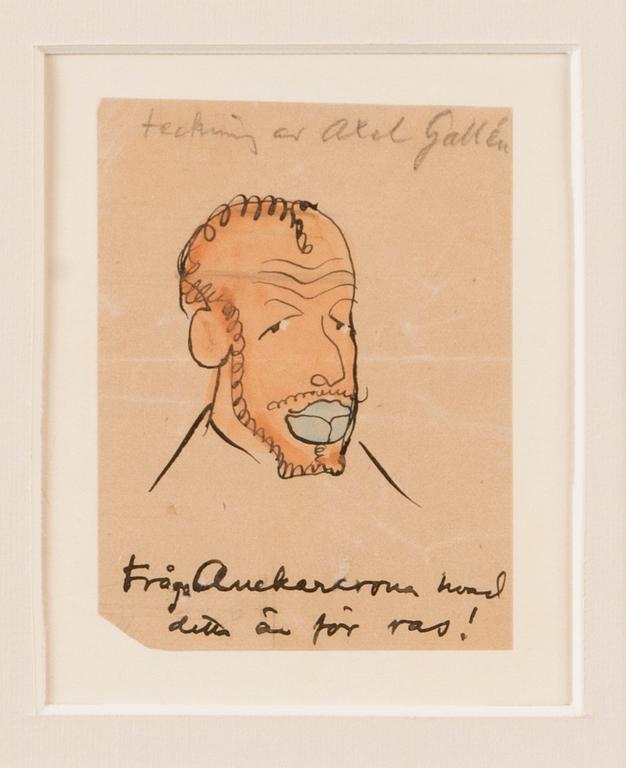 teckning av Axel Gallén
Fråga Anckarcrona hvad
detta är för ras!